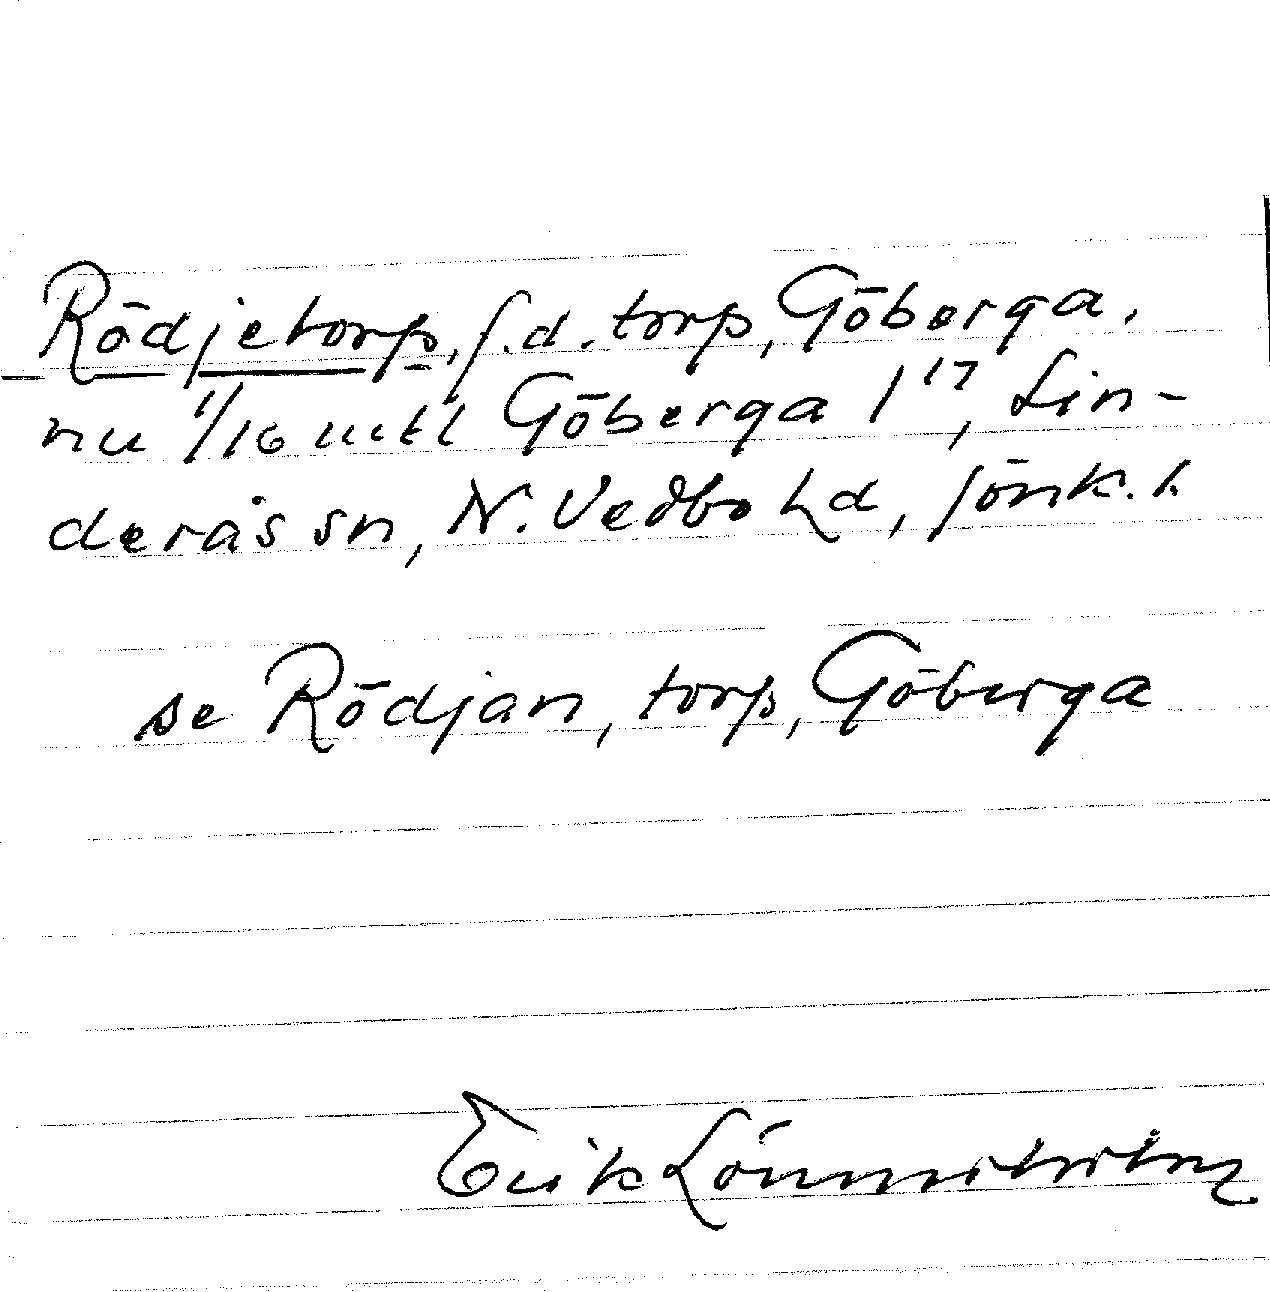 Rödjetorp, f.d. torp, Göberga,
nu 1/16 mtl Göberga 1¹⁷, Lin-
derås sn, N. Vedbo hd, Jönk. l.
se Rödjan, torp, Göberga
Erik